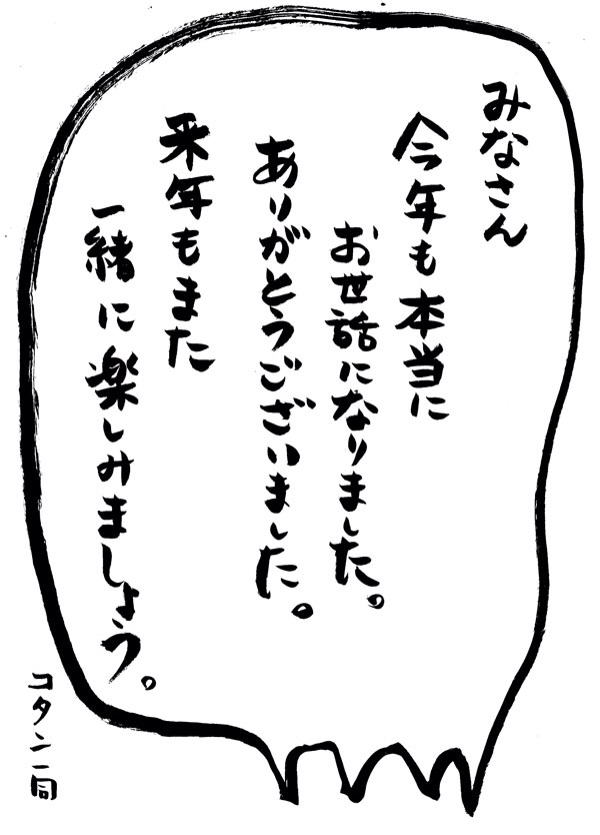 みなさん
今年も本当に
お世話になりました。
ありがとうございました。
来年もまた
一緒に楽しみましょう。
コタン一同